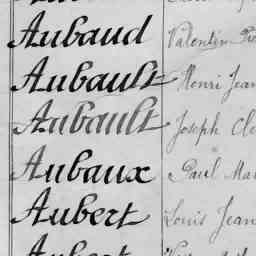 Aubaud Valentin
Aubault Henri Jean
Aubault Joseph
Aubaux Paul
Aubert Louis Jean